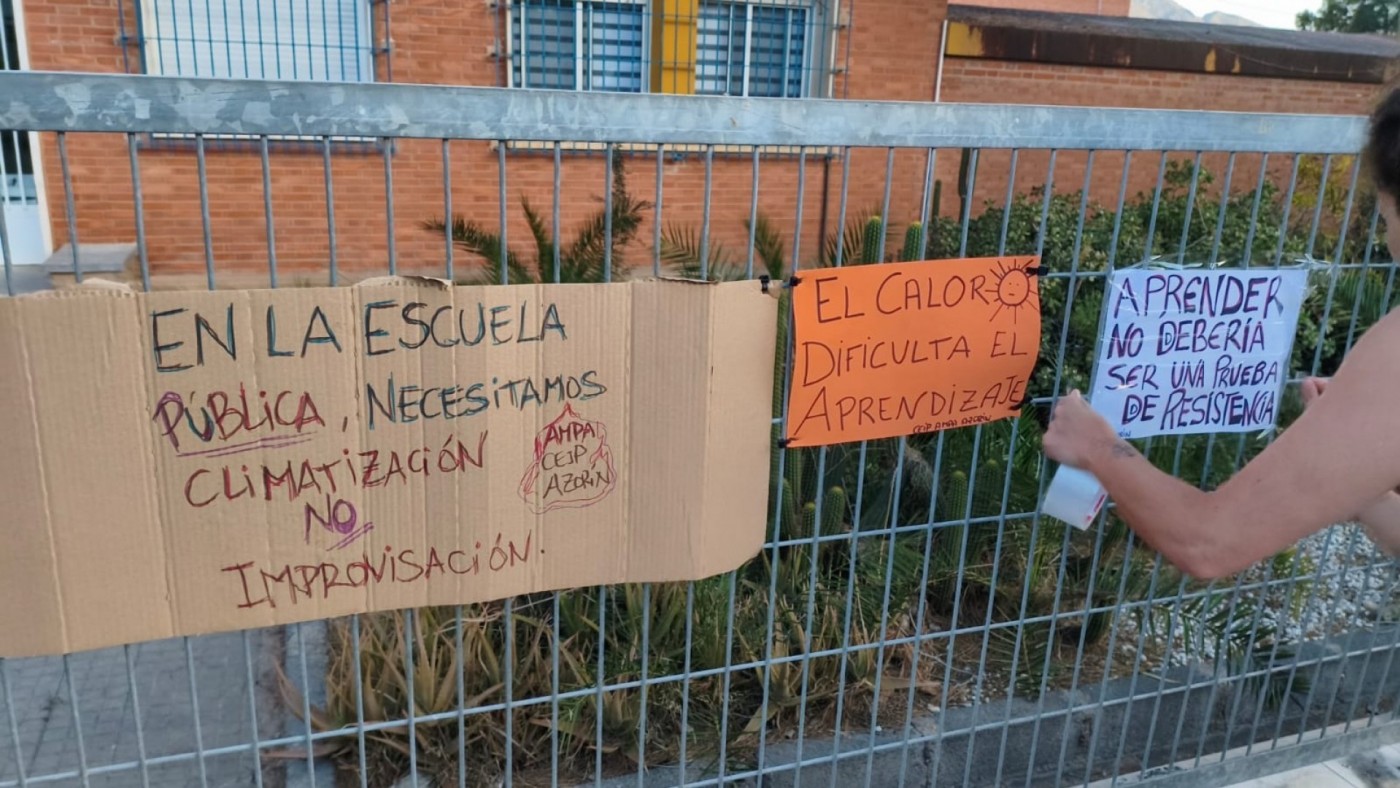 EN LA ESCUELA
PÚBLICA, NECESITAMOS
CLIMATIZACIÓN
NO
IMPROVISACIÓN.
AMPA
CEIP
AZORÍN
EL CALOR
DIFICULTA EL
APRENDIZAJE
CEIP AMPA AZORÍN
APRENDER
NO DEBERÍA
SER UNA PRUEBA
DE RESISTENCIA